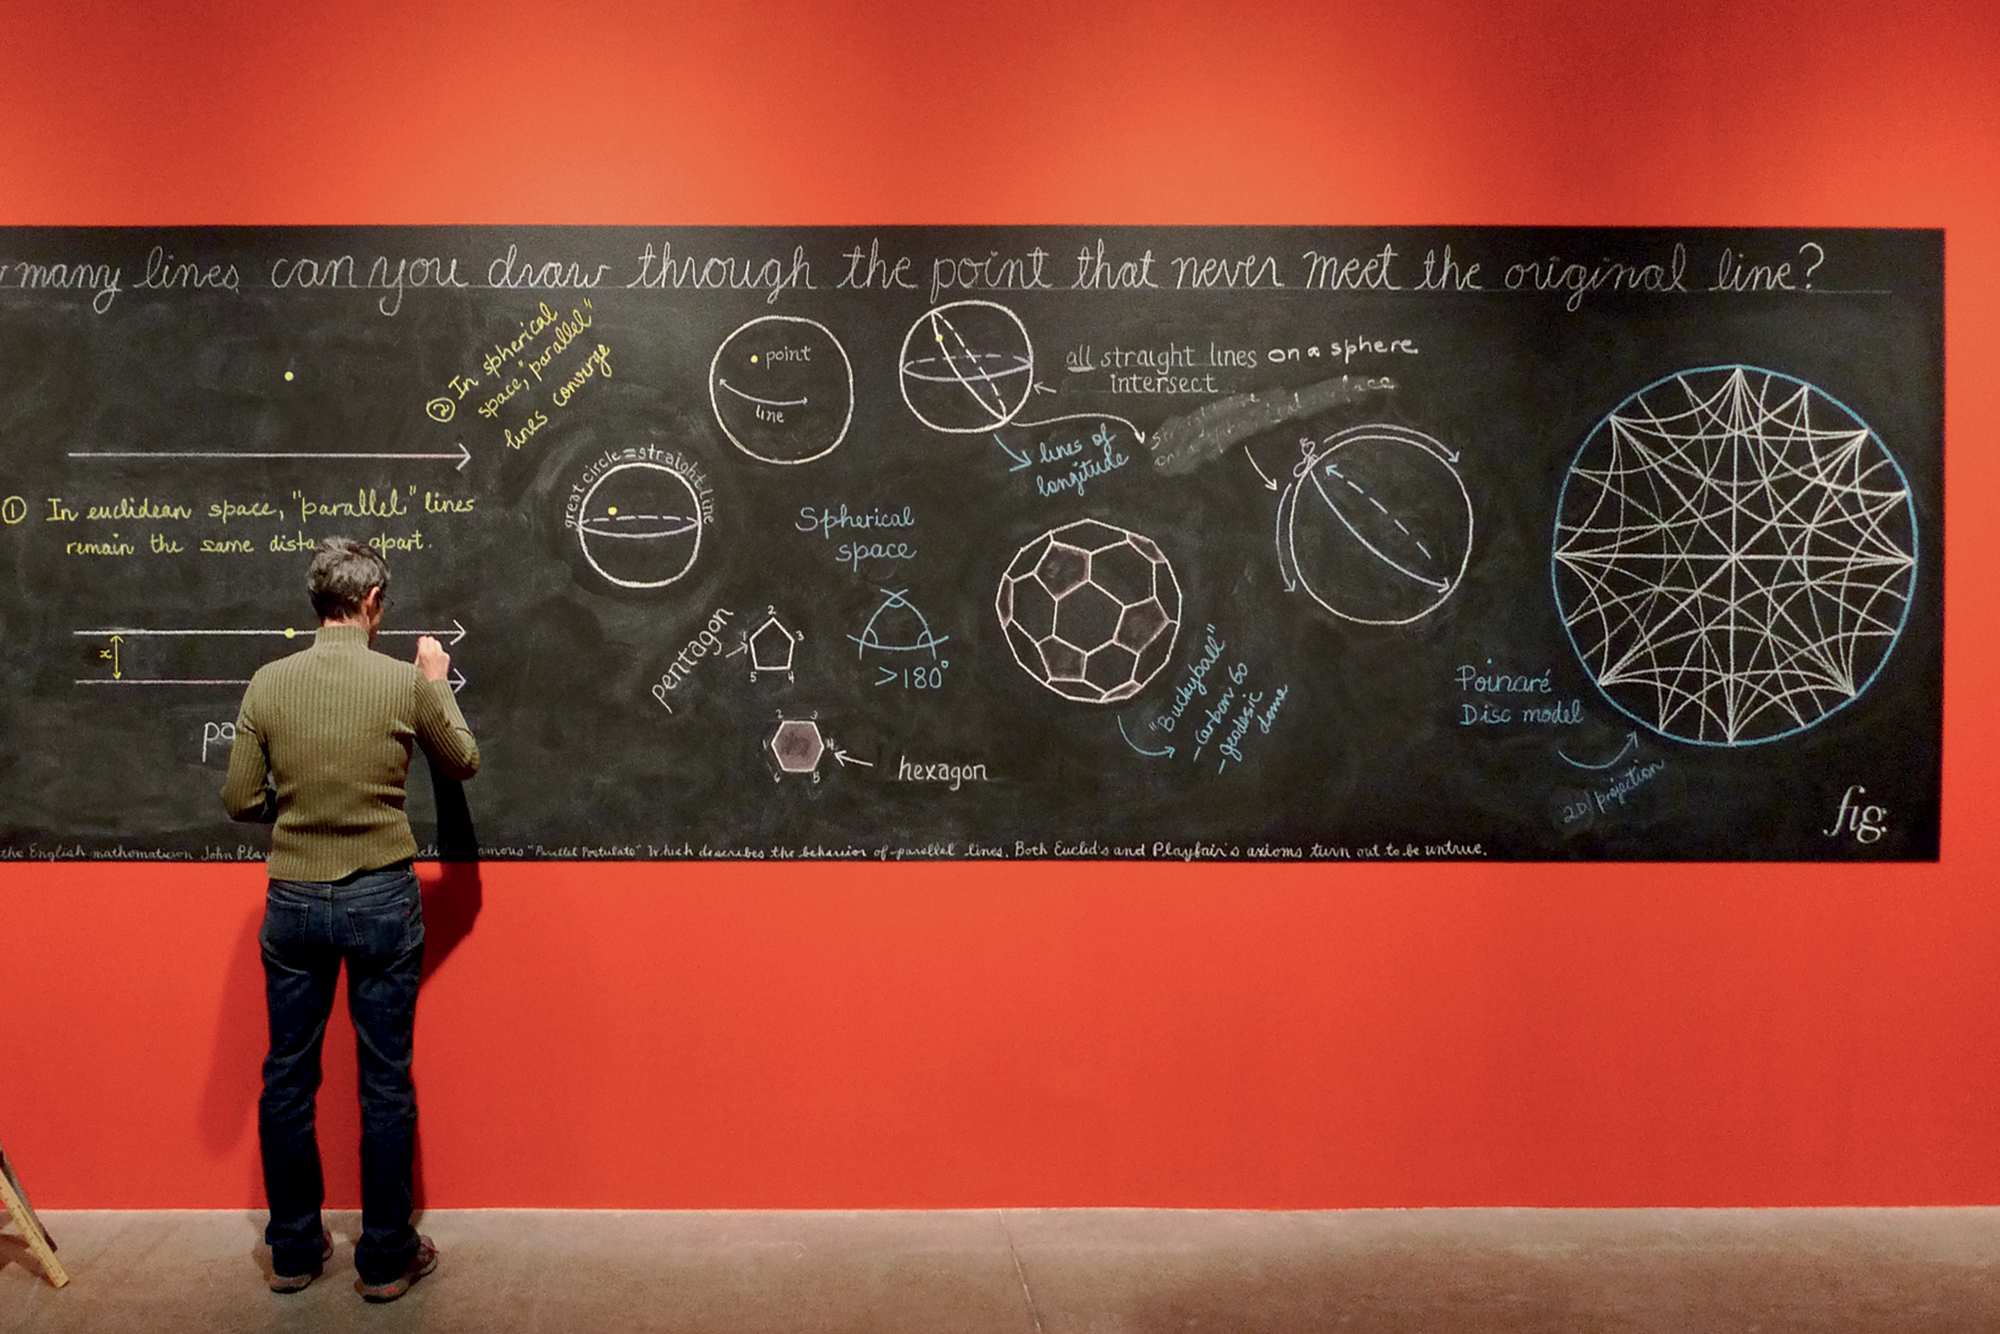 many lines can you draw through the point that never meet the original line?
② In spherical
space, "parallel"
lines converge
① In euclidean space, "parallel" lines
remain the same dista apart.
x
pa
great circle = straight line
point
line
all straight lines on a sphere
intersect
lines of
longitude
Spherical
space
>180°
pentagon
1 2 3 4 5
hexagon
1 2 3 4 5 6
"Buckyball"
- carbon 60
- geodesic
dome
Poinaré
Disc model
2D projection
fig.
the English mathematician John Play famous "Parallel Postulate" which describes the behavior of parallel lines. Both Euclid's and Playfair's axioms turn out to be untrue.